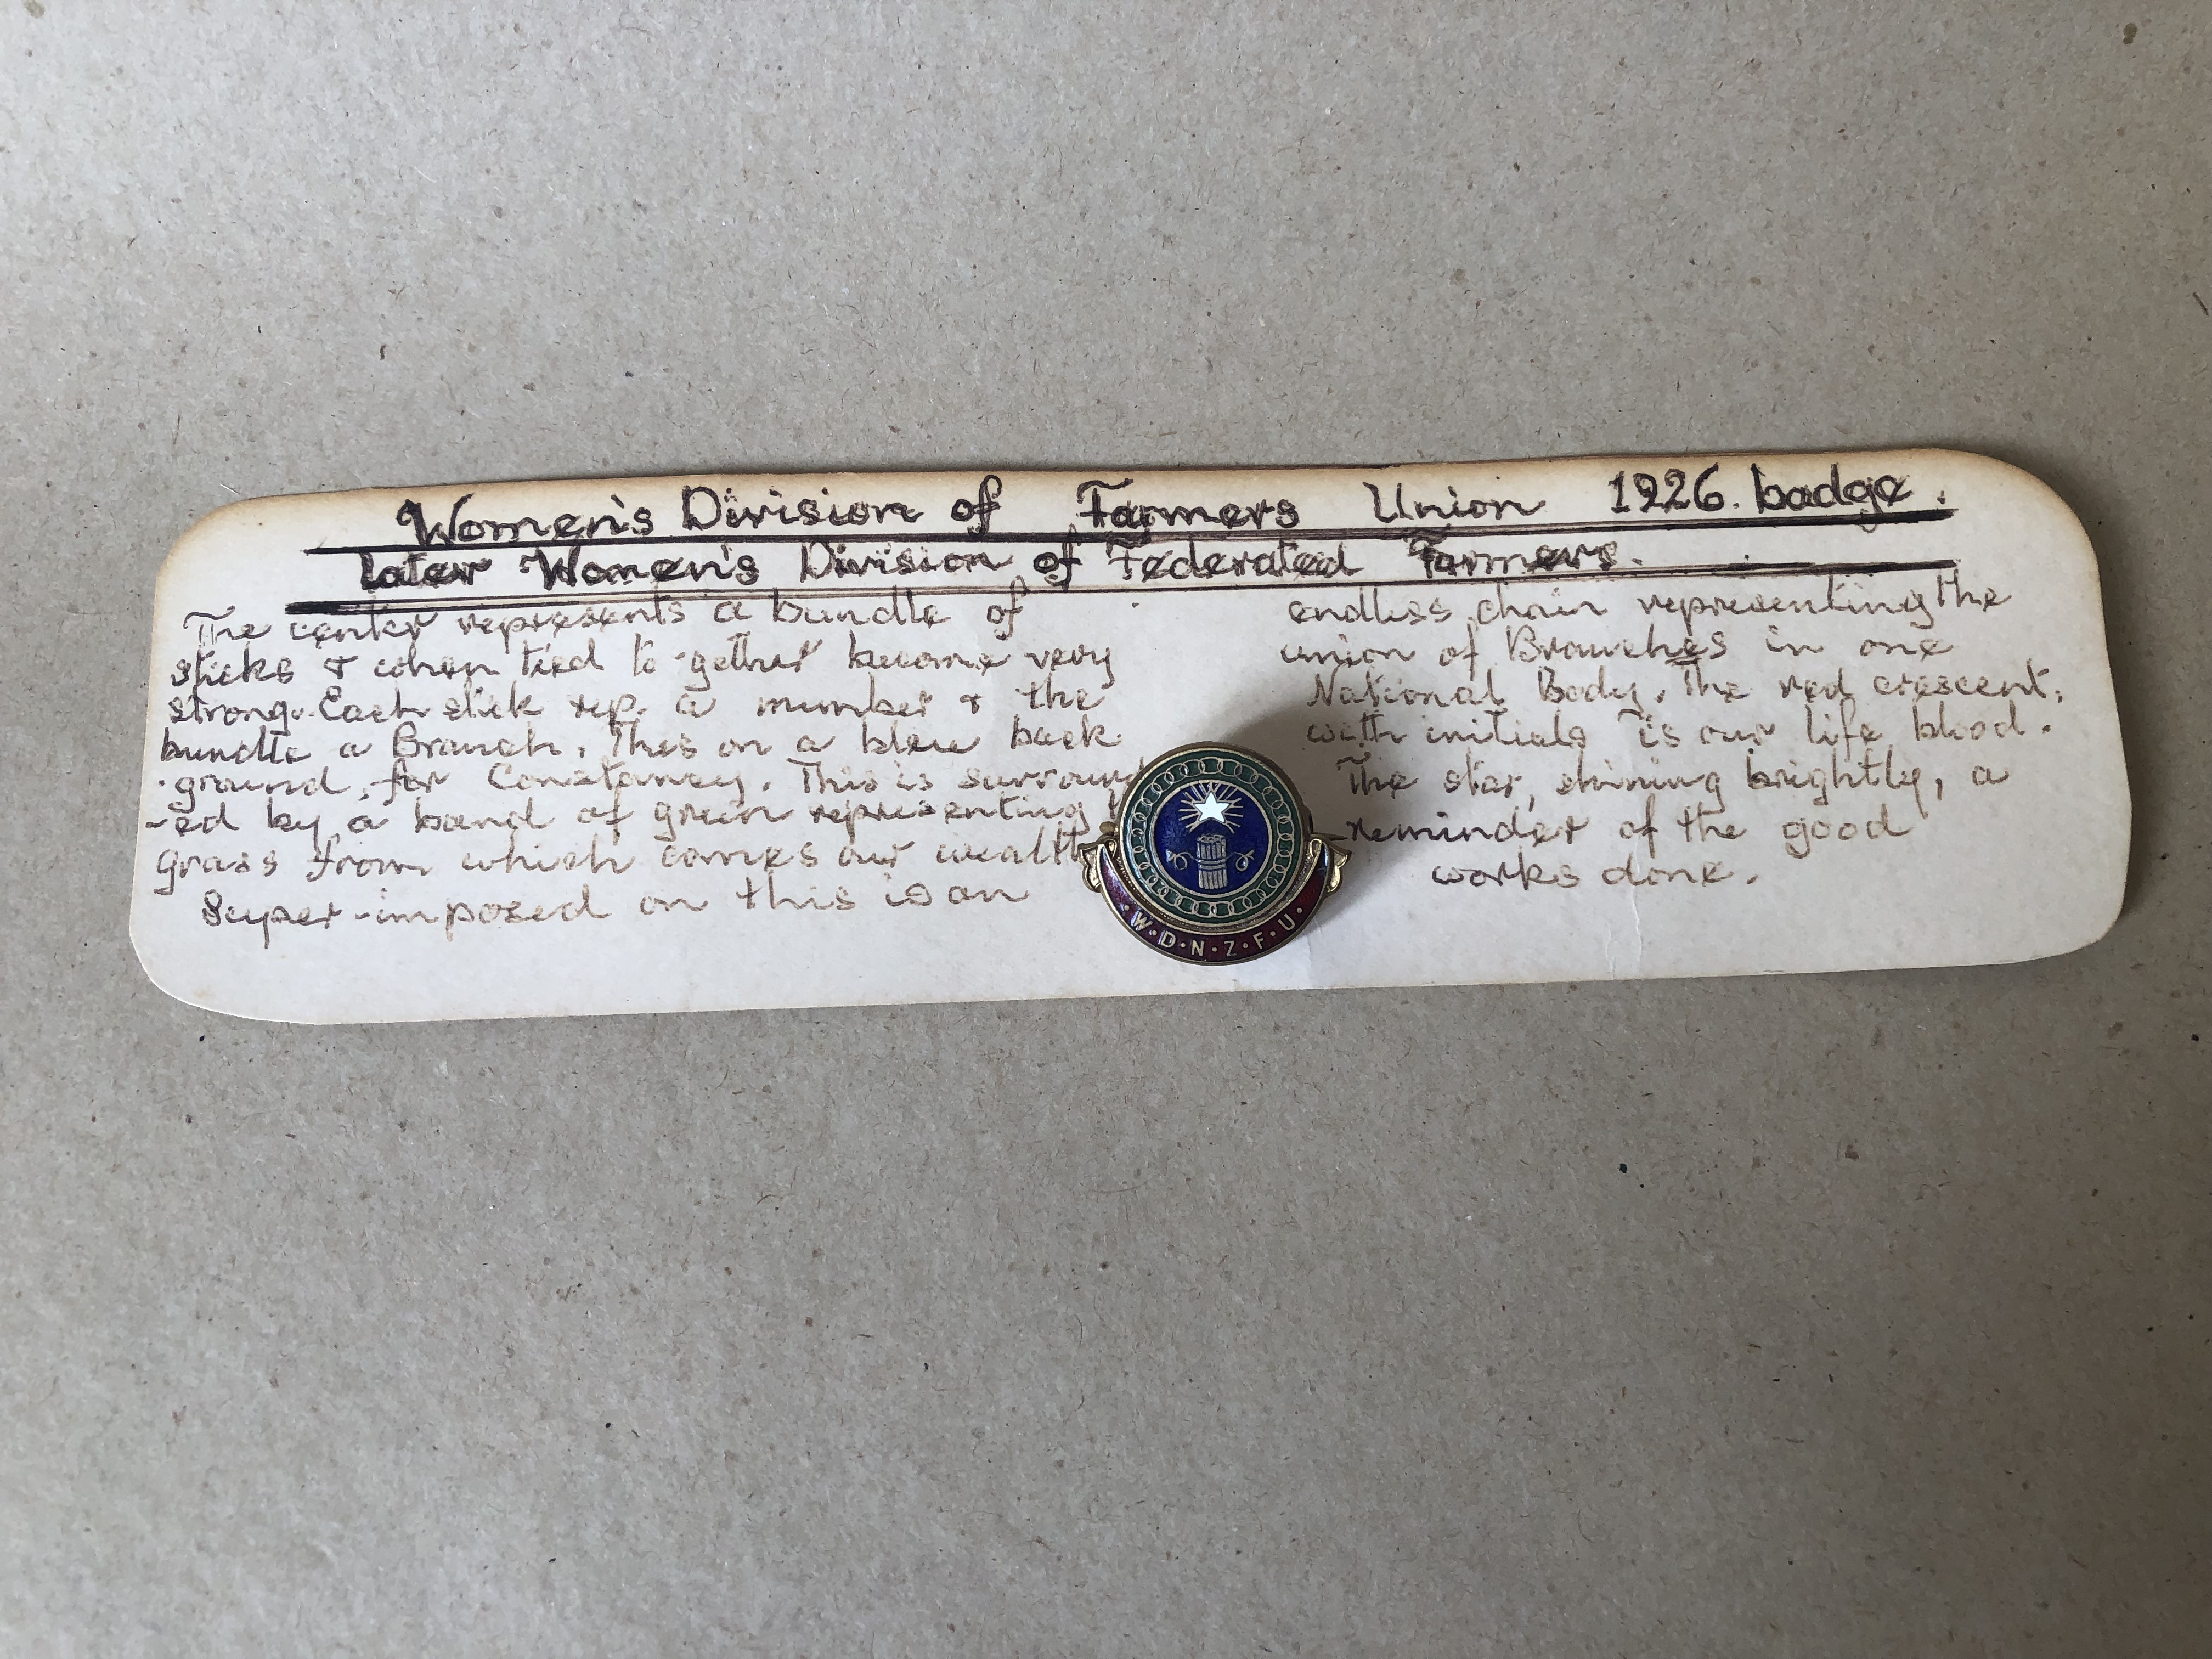 Women's Division of Farmers Union 1926. badge.
later Women's Division of Federated Farmers.
The centre represents a bundle of
sticks & when tied to gether become very
strong. Each stick rep. a member & the
bundle a Branch. This on a blue back
ground, for Constancy. This is surround
-ed by a band of green representing
grass from which comes our wealth
Super-imposed on this is an
endless chain representing the
union of Branches in one
National Body. The red crescent,
with initials is our life blood.
The star, shining brightly, a
reminder of the good
works done.
W.D.N.Z.F.U.